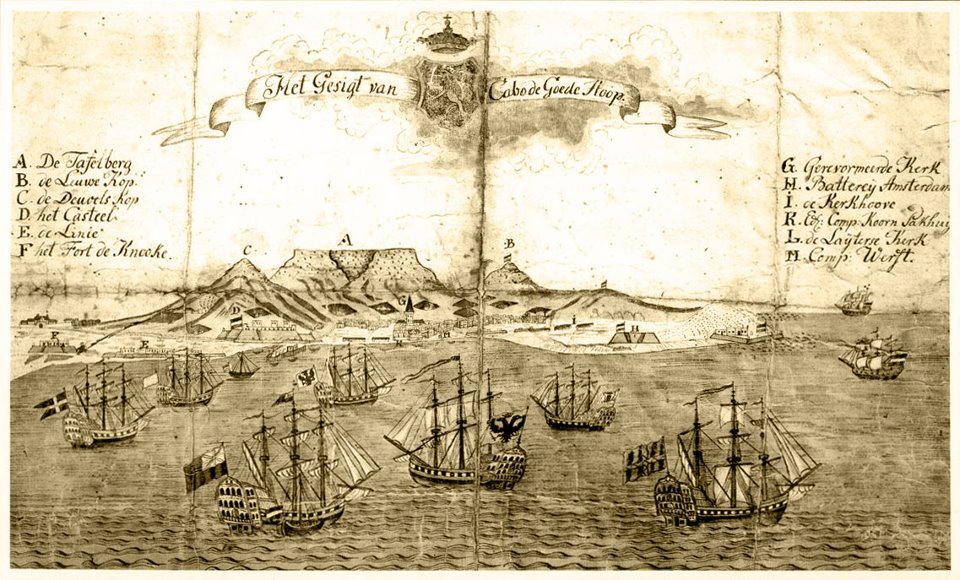 Het Gesigt van
Cabo de Goede Hoop.
A. De Tafelberg
B. de Leuwe Kop.
C. de Deuvels Kop
D. het Casteel.
E. de Linie
F het Fort de Knooke.
G. Gerevormeerde Kerk
H. Batterey Amsterdam
I. de Kerkhoove
K. Comp: Koorn Pakhuy
L. de Layterse Kerk
M. Comp: Werft.
A
B
C
D
G
H
E
F